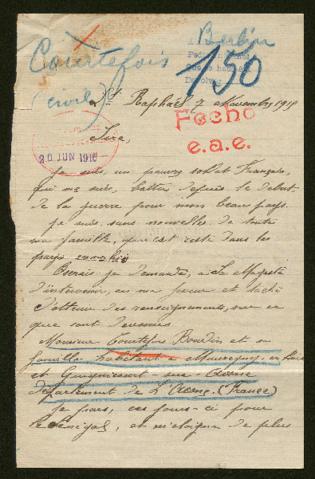 Berlin
Courtefois
(civil)
150
St Raphaël 7 Novembre 1915
Fecho
e.a.e.
Sire,
20 JUN 1916
Je suis, un pauvre soldat Français,
qui me suis, battu depuis le début
de la guerre pour mon beau pays.
Je suis, sans nouvelles de toute
ma famille, qui est resté dans les
pays envahis
demander, à Sa Majesté
d'intervenir, en ma faveur et tâché
d'obtenir des renseignements, sur ce
que sont devenus
Monsieur Courtefois Boudin et sa
famille habitant a
et Guignicourt sur Aisne
département de l'Aisne. (France)
Je pars, ces jours-ci pour
le Sénégal, et m'éloigne de plus